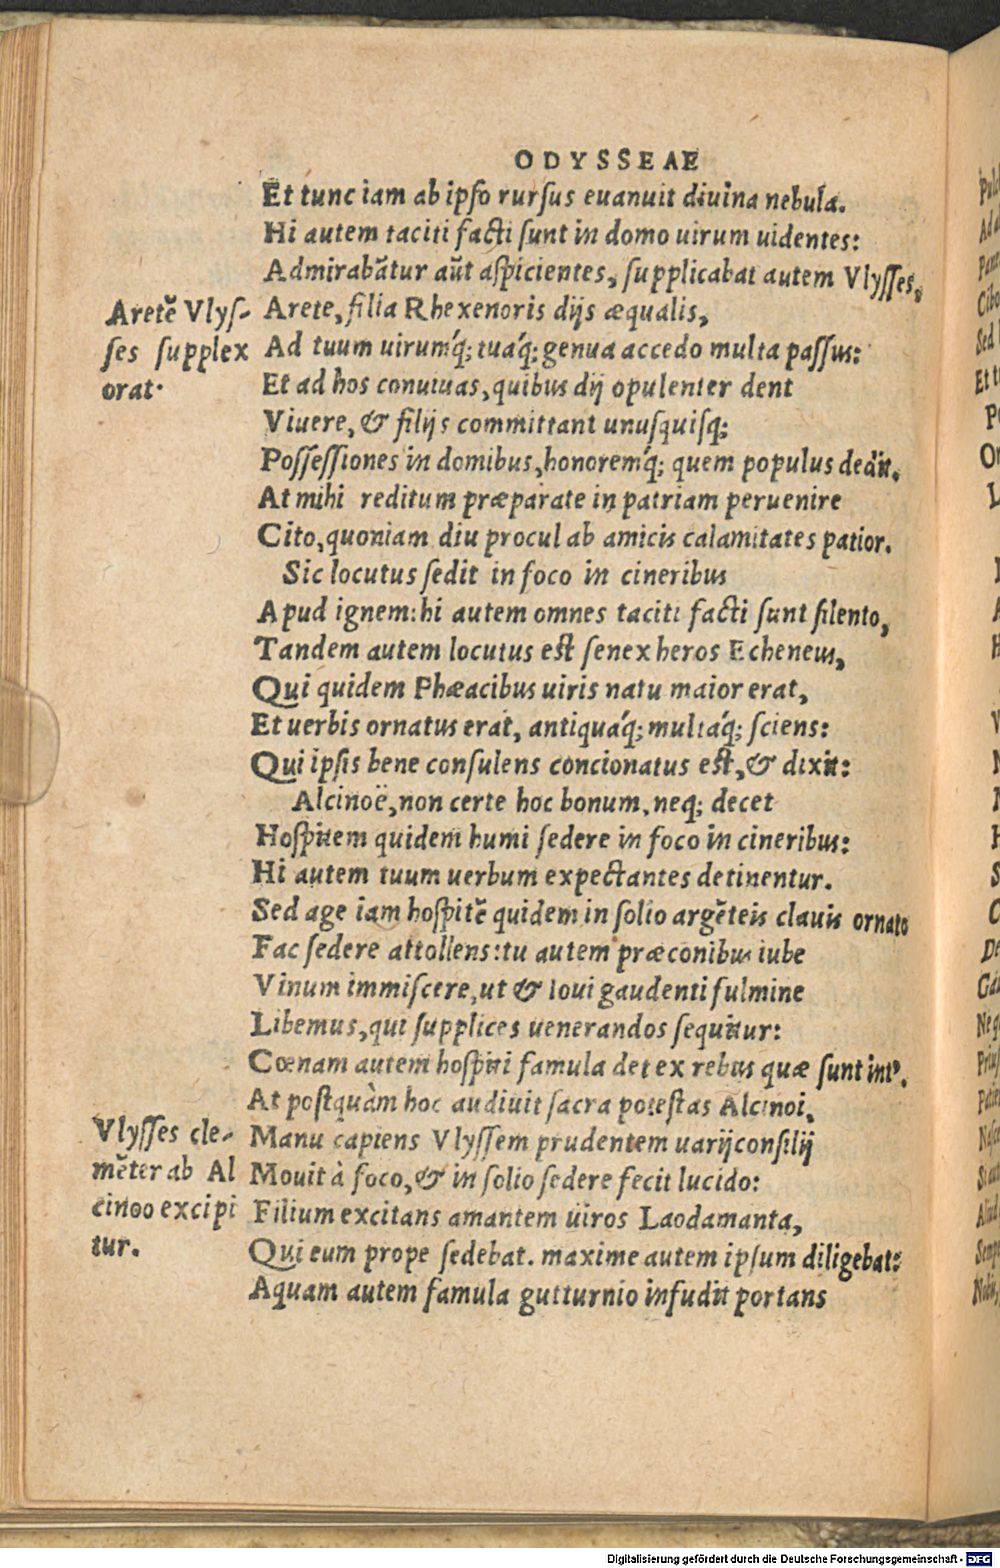 ODYSSEAE
Et tunc iam ab ipso rursus euanuit diuina nebula.
Hi autem taciti facti sunt in domo uirum uidentes:
Admirabãtur aũt aspicientes, supplicabat autem Vlysses,
Aretẽ Vlys-
ses supplex
orat.
Arete, filia Rhexenoris dijs æqualis,
Ad tuum uirumq́; tuaq́; genua accedo multa passus:
Et ad hos conuiuas, quibus dij opulenter dent
Viuere, & filijs committant unusquisq;
Possessiones in domibus, honoremq́; quem populus dedit.
At mihi reditum præparate in patriam peruenire
Cito, quoniam diu procul ab amicis calamitates patior.
Sic locutus sedit in foco in cineribus
Apud ignem: hi autem omnes taciti facti sunt silento,
Tandem autem locutus est senex heros Echeneus,
Qui quidem Phæacibus uiris natu maior erat,
Et uerbis ornatus erat, antiquaq́; multaq́; sciens:
Qui ipsis bene consulens concionatus est, & dixit:
Alcinoë, non certe hoc bonum, neq; decet
Hospitem quidem humi sedere in foco in cineribus:
Hi autem tuum uerbum expectantes detinentur.
Sed age iam hospitẽ quidem in solio argẽteis clauis ornato
Fac sedere attollens: tu autem præconibus iube
Vinum immiscere, ut & Ioui gaudenti fulmine
Libemus, qui supplices uenerandos sequitur:
Cœnam autem hospiti famula det ex rebus quæ sunt intꝰ.
At postquàm hoc audiuit sacra potestas Alcinoi,
Vlysses cle-
mẽter ab Al
cinoo excipi
tur.
Manu capiens Vlyssem prudentem uarijconsilij
Mouit à foco, & in solio sedere fecit lucido:
Filium excitans amantem uiros Laodamanta,
Qui eum prope sedebat. maxime autem ipsum diligebat:
Aquam autem famula gutturnio infudit portans
Digitalisierung gefördert durch die Deutsche Forschungsgemeinschaft - DFG